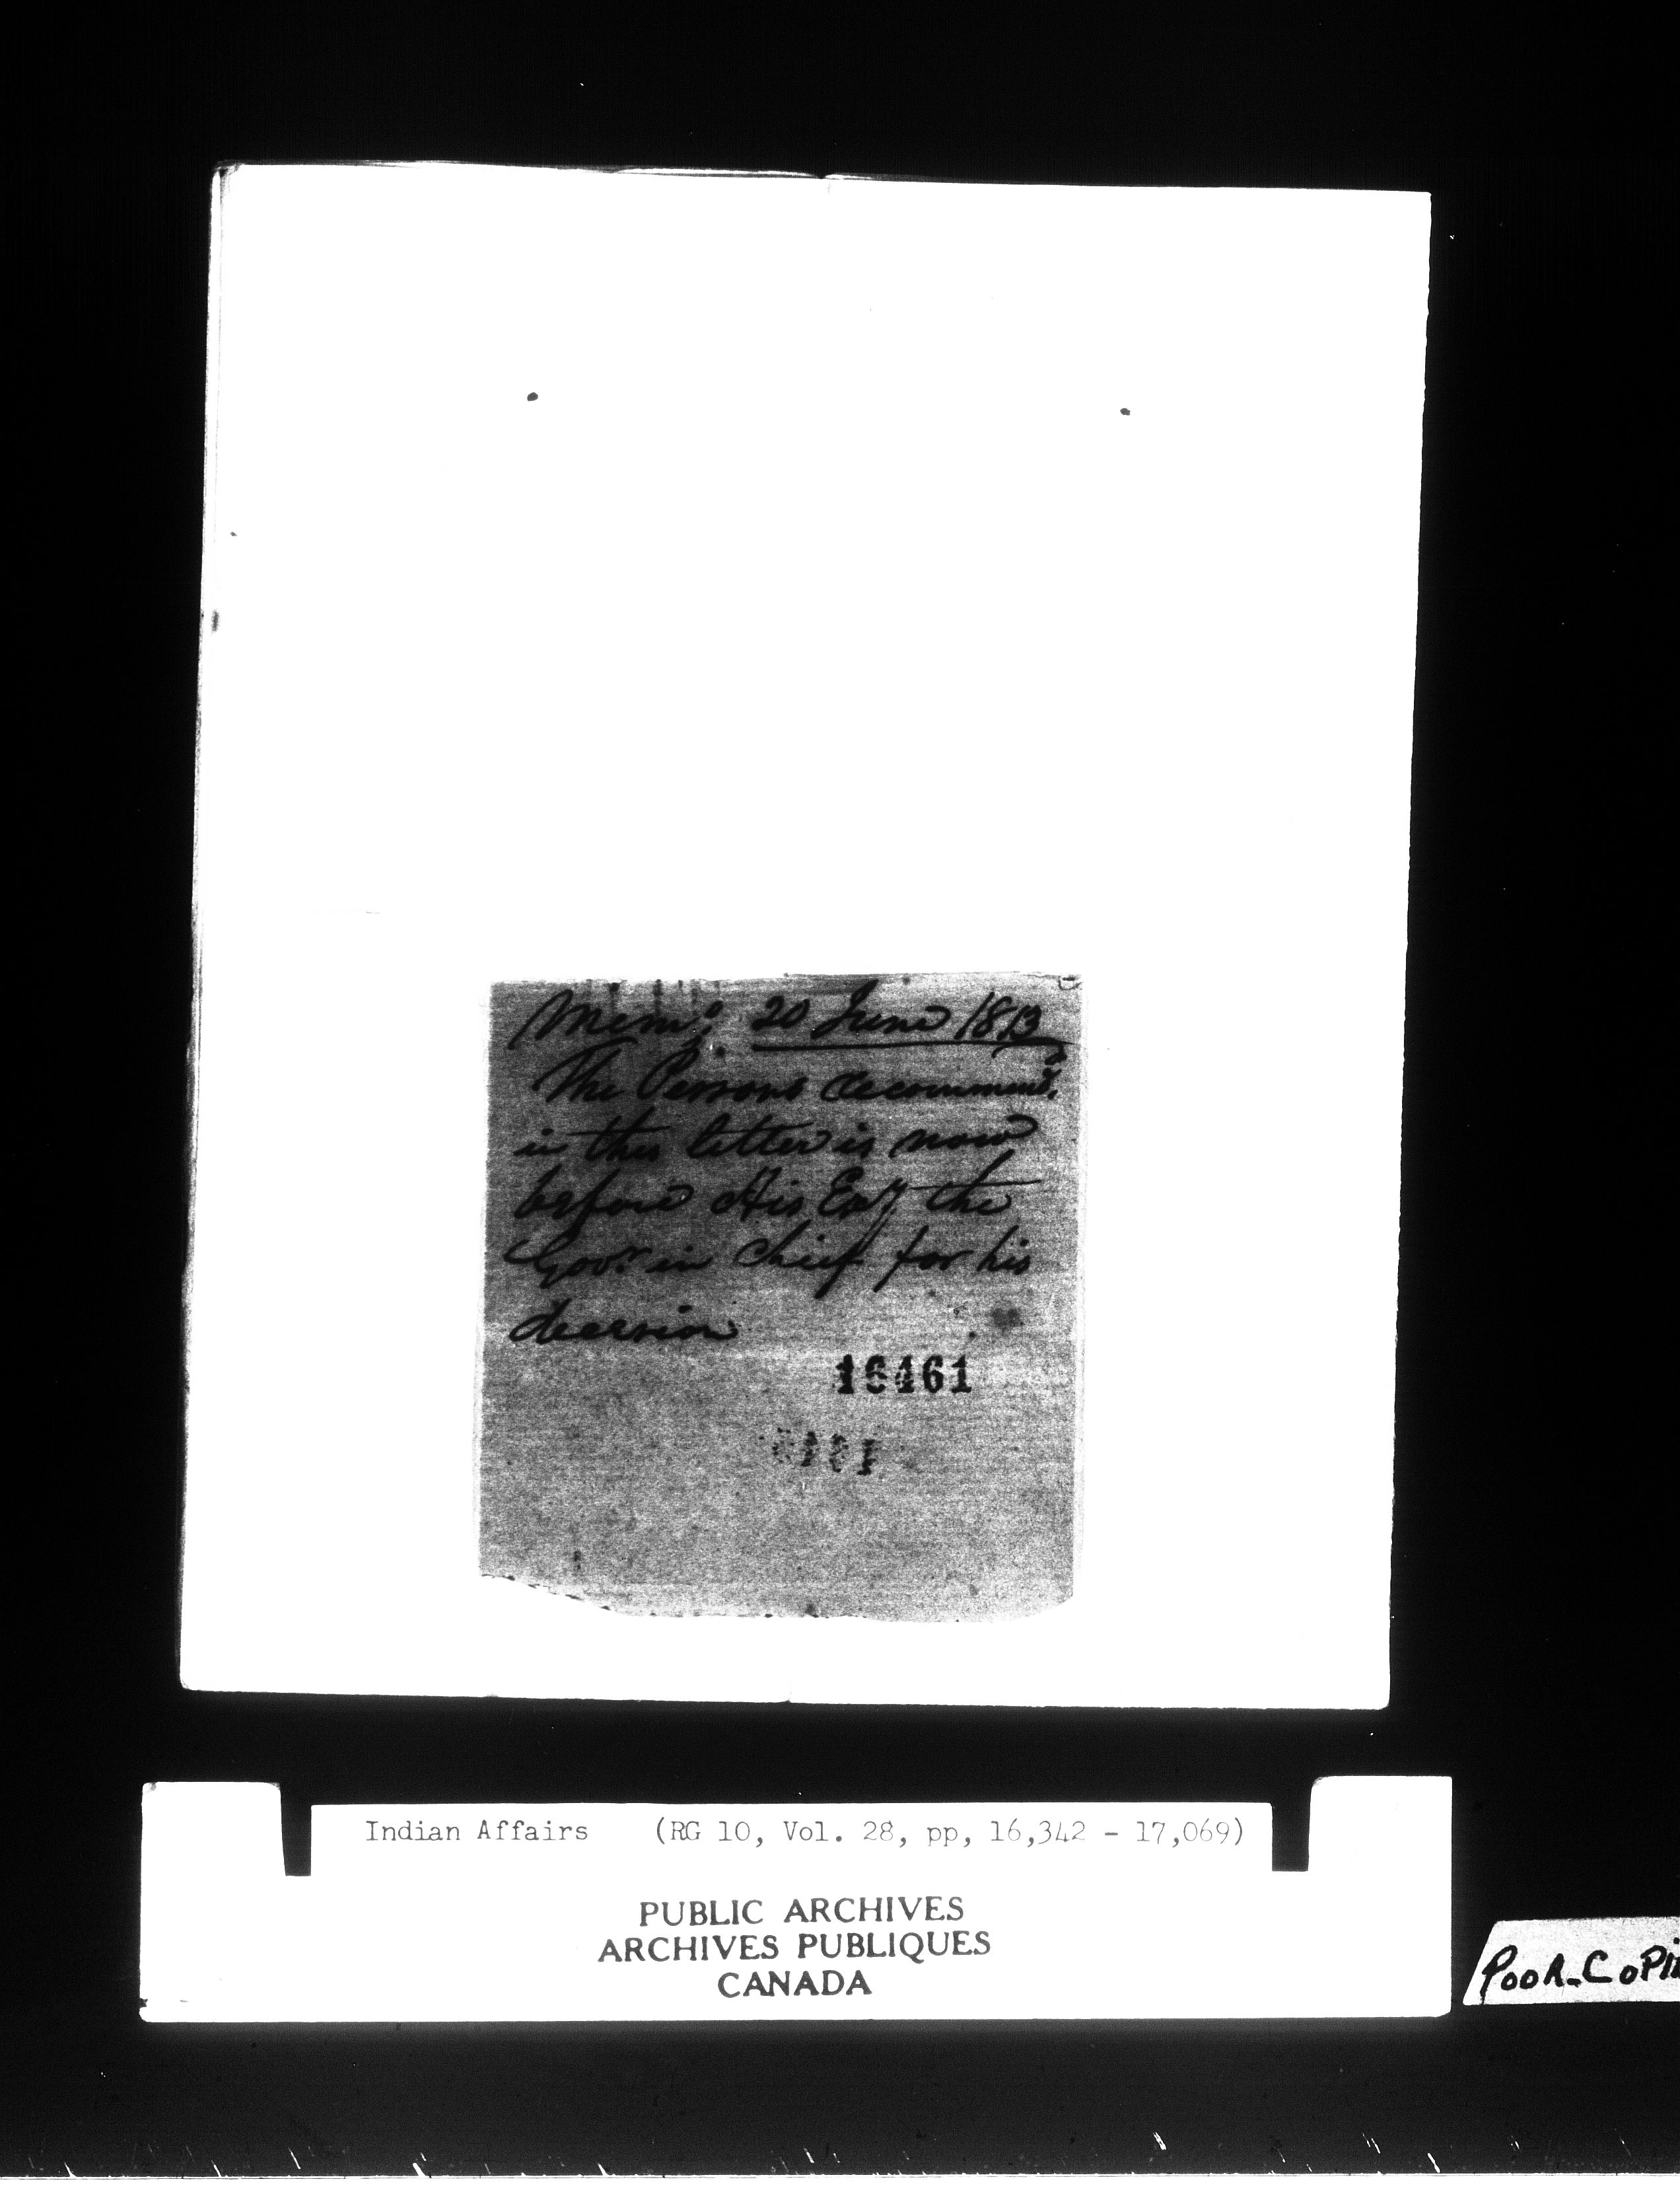 Memo: 20 June 1813
The Persons recommend.d
in this letter is now
before His Exy the
Govr. in Chief for his
decision
16461
Indian Affairs (RG 10, Vol. 28, pp, 16,342 - 17,069)
PUBLIC ARCHIVES
ARCHIVES PUBLIQUES
CANADA
POOR-COPI